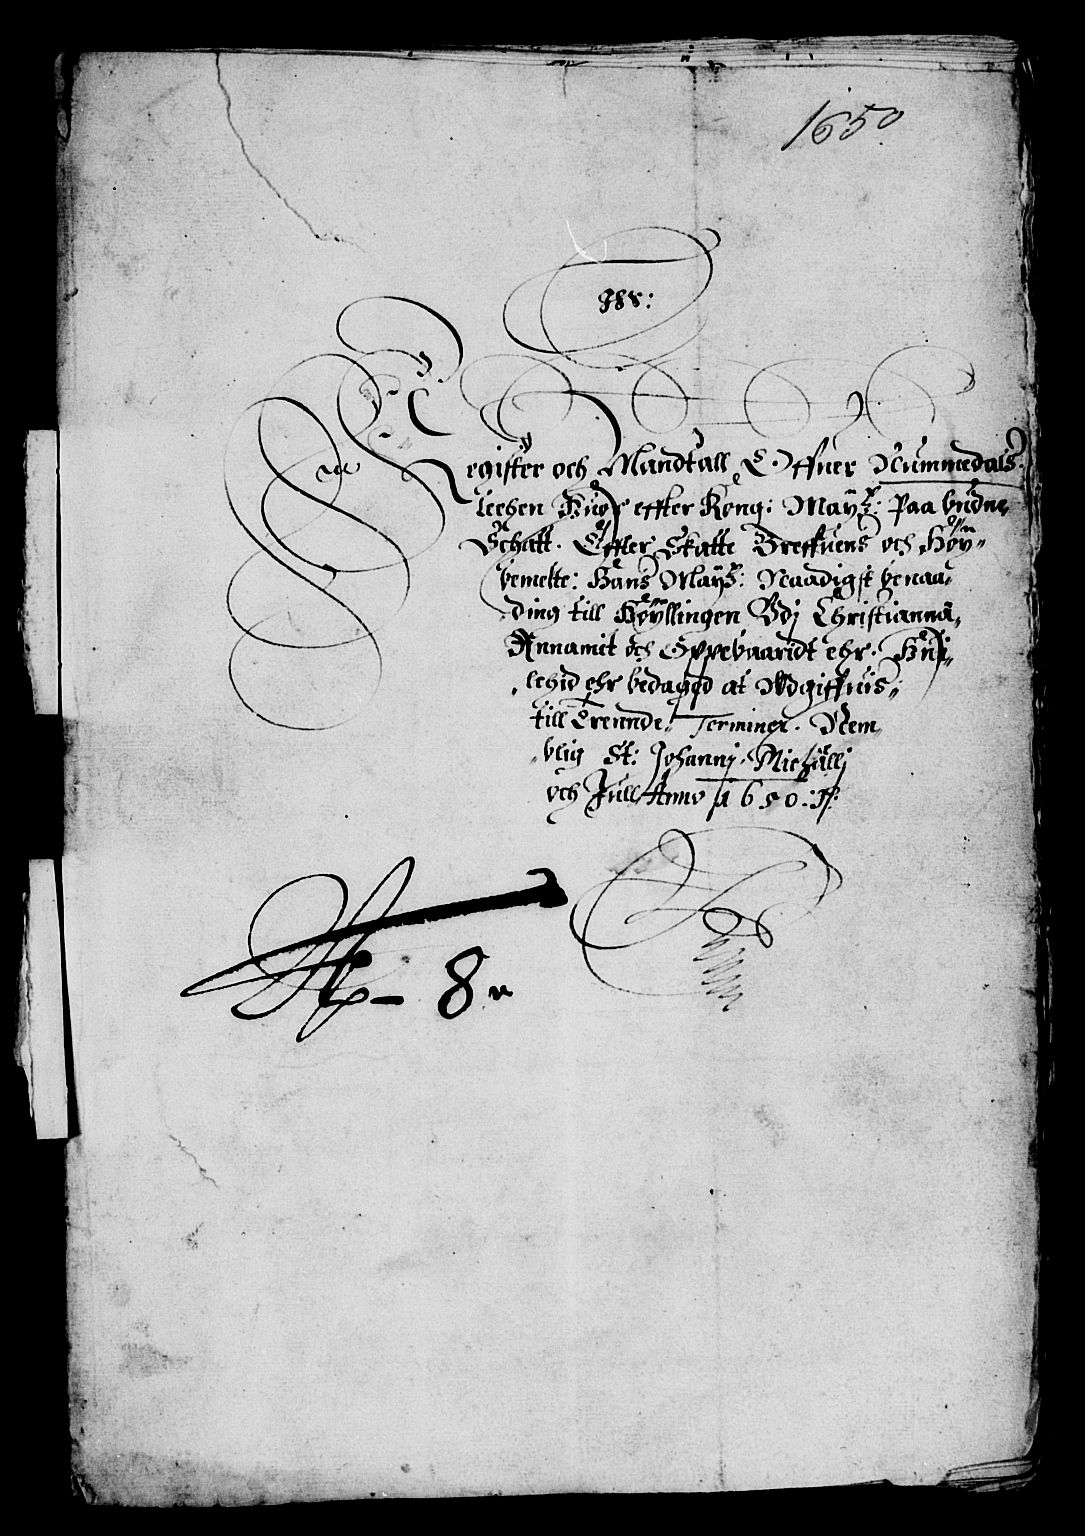 1650
Register och Mandtall Offuer Nummedals
leehen Huor effter Kong: Mayz: Paabudne
Schatt. Effter Skatte Breffuens och Høy-
bemelte: Hans Mayz: Naadigst benaa-
ding till Høyllingen Vdj Christianna,
Annamit och Oppebaaridt ehr. Huj-
lchid ehr bedaged at Vdgiffuis
till Trennde Terminer. Nem-
blig St: Johannj. Michallj
och Jull Anno 1650
N- 8